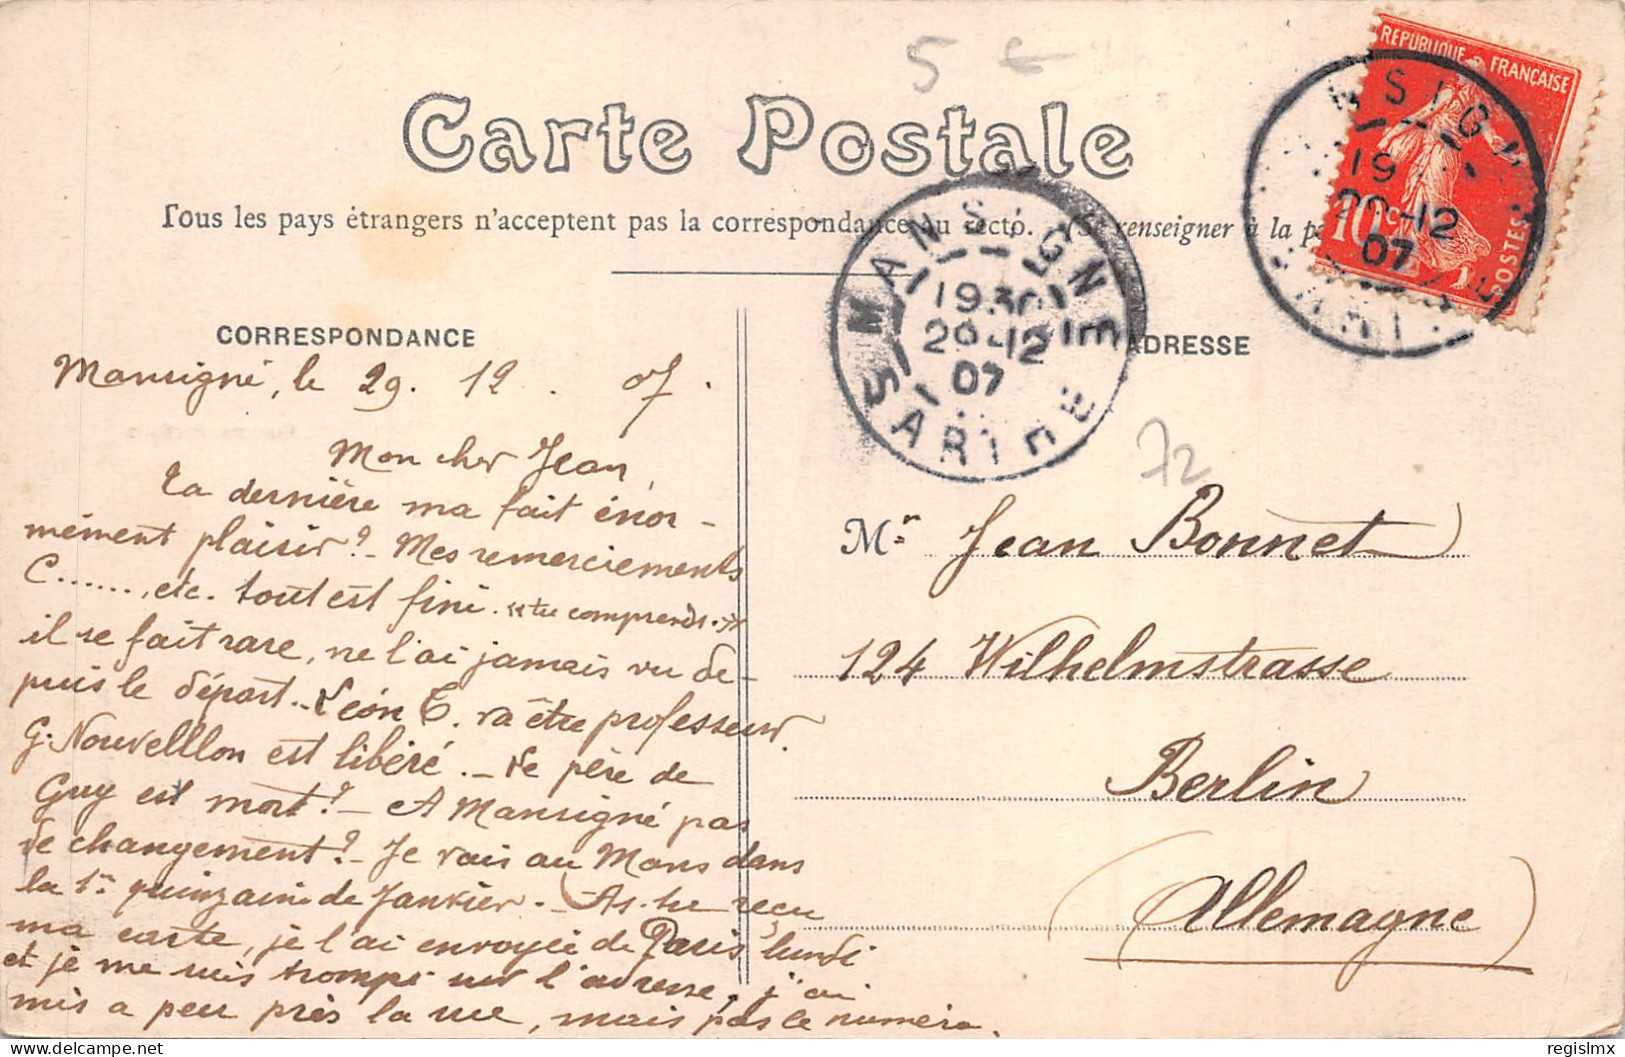 5 €
Carte Postale
Tous les pays étrangers n'acceptent pas la correspondance au recto. (Se renseigner à la
RÉPUBLIQUE FRANÇAISE
10c
POSTES
NSIGN
19
20-12
07
MANSIGNÉ
1930
29-12
07
SARTHE
CORRESPONDANCE
ADRESSE
Mansigné, le 29. 12. 07.
Mon cher Jean,
Ta dernière ma fait énor-
mément plaisir? - Mes remerciements
C......, etc. tout est fini. «tu comprends.»
il se fait rare, ne l'ai jamais vu de-
puis le départ.. Léon T. va être professeur.
G. Nouvelllon est libéré. - Le père de
Guy est mort? - A Mansigné pas
de changement? - Je vais au Mans dans
la 1re quinzaine de Janvier. - As-tu reçu
ma carte, je l'ai envoyée de Paris lundi
et je me suis trompé sur l'adresse, j'ai
mis a peu près la rue, mais pas le numéro.
72
Mr Jean Bonnet
124 Wilhelmstrasse
Berlin
(Allemagne)
delcampe.net
regislmx